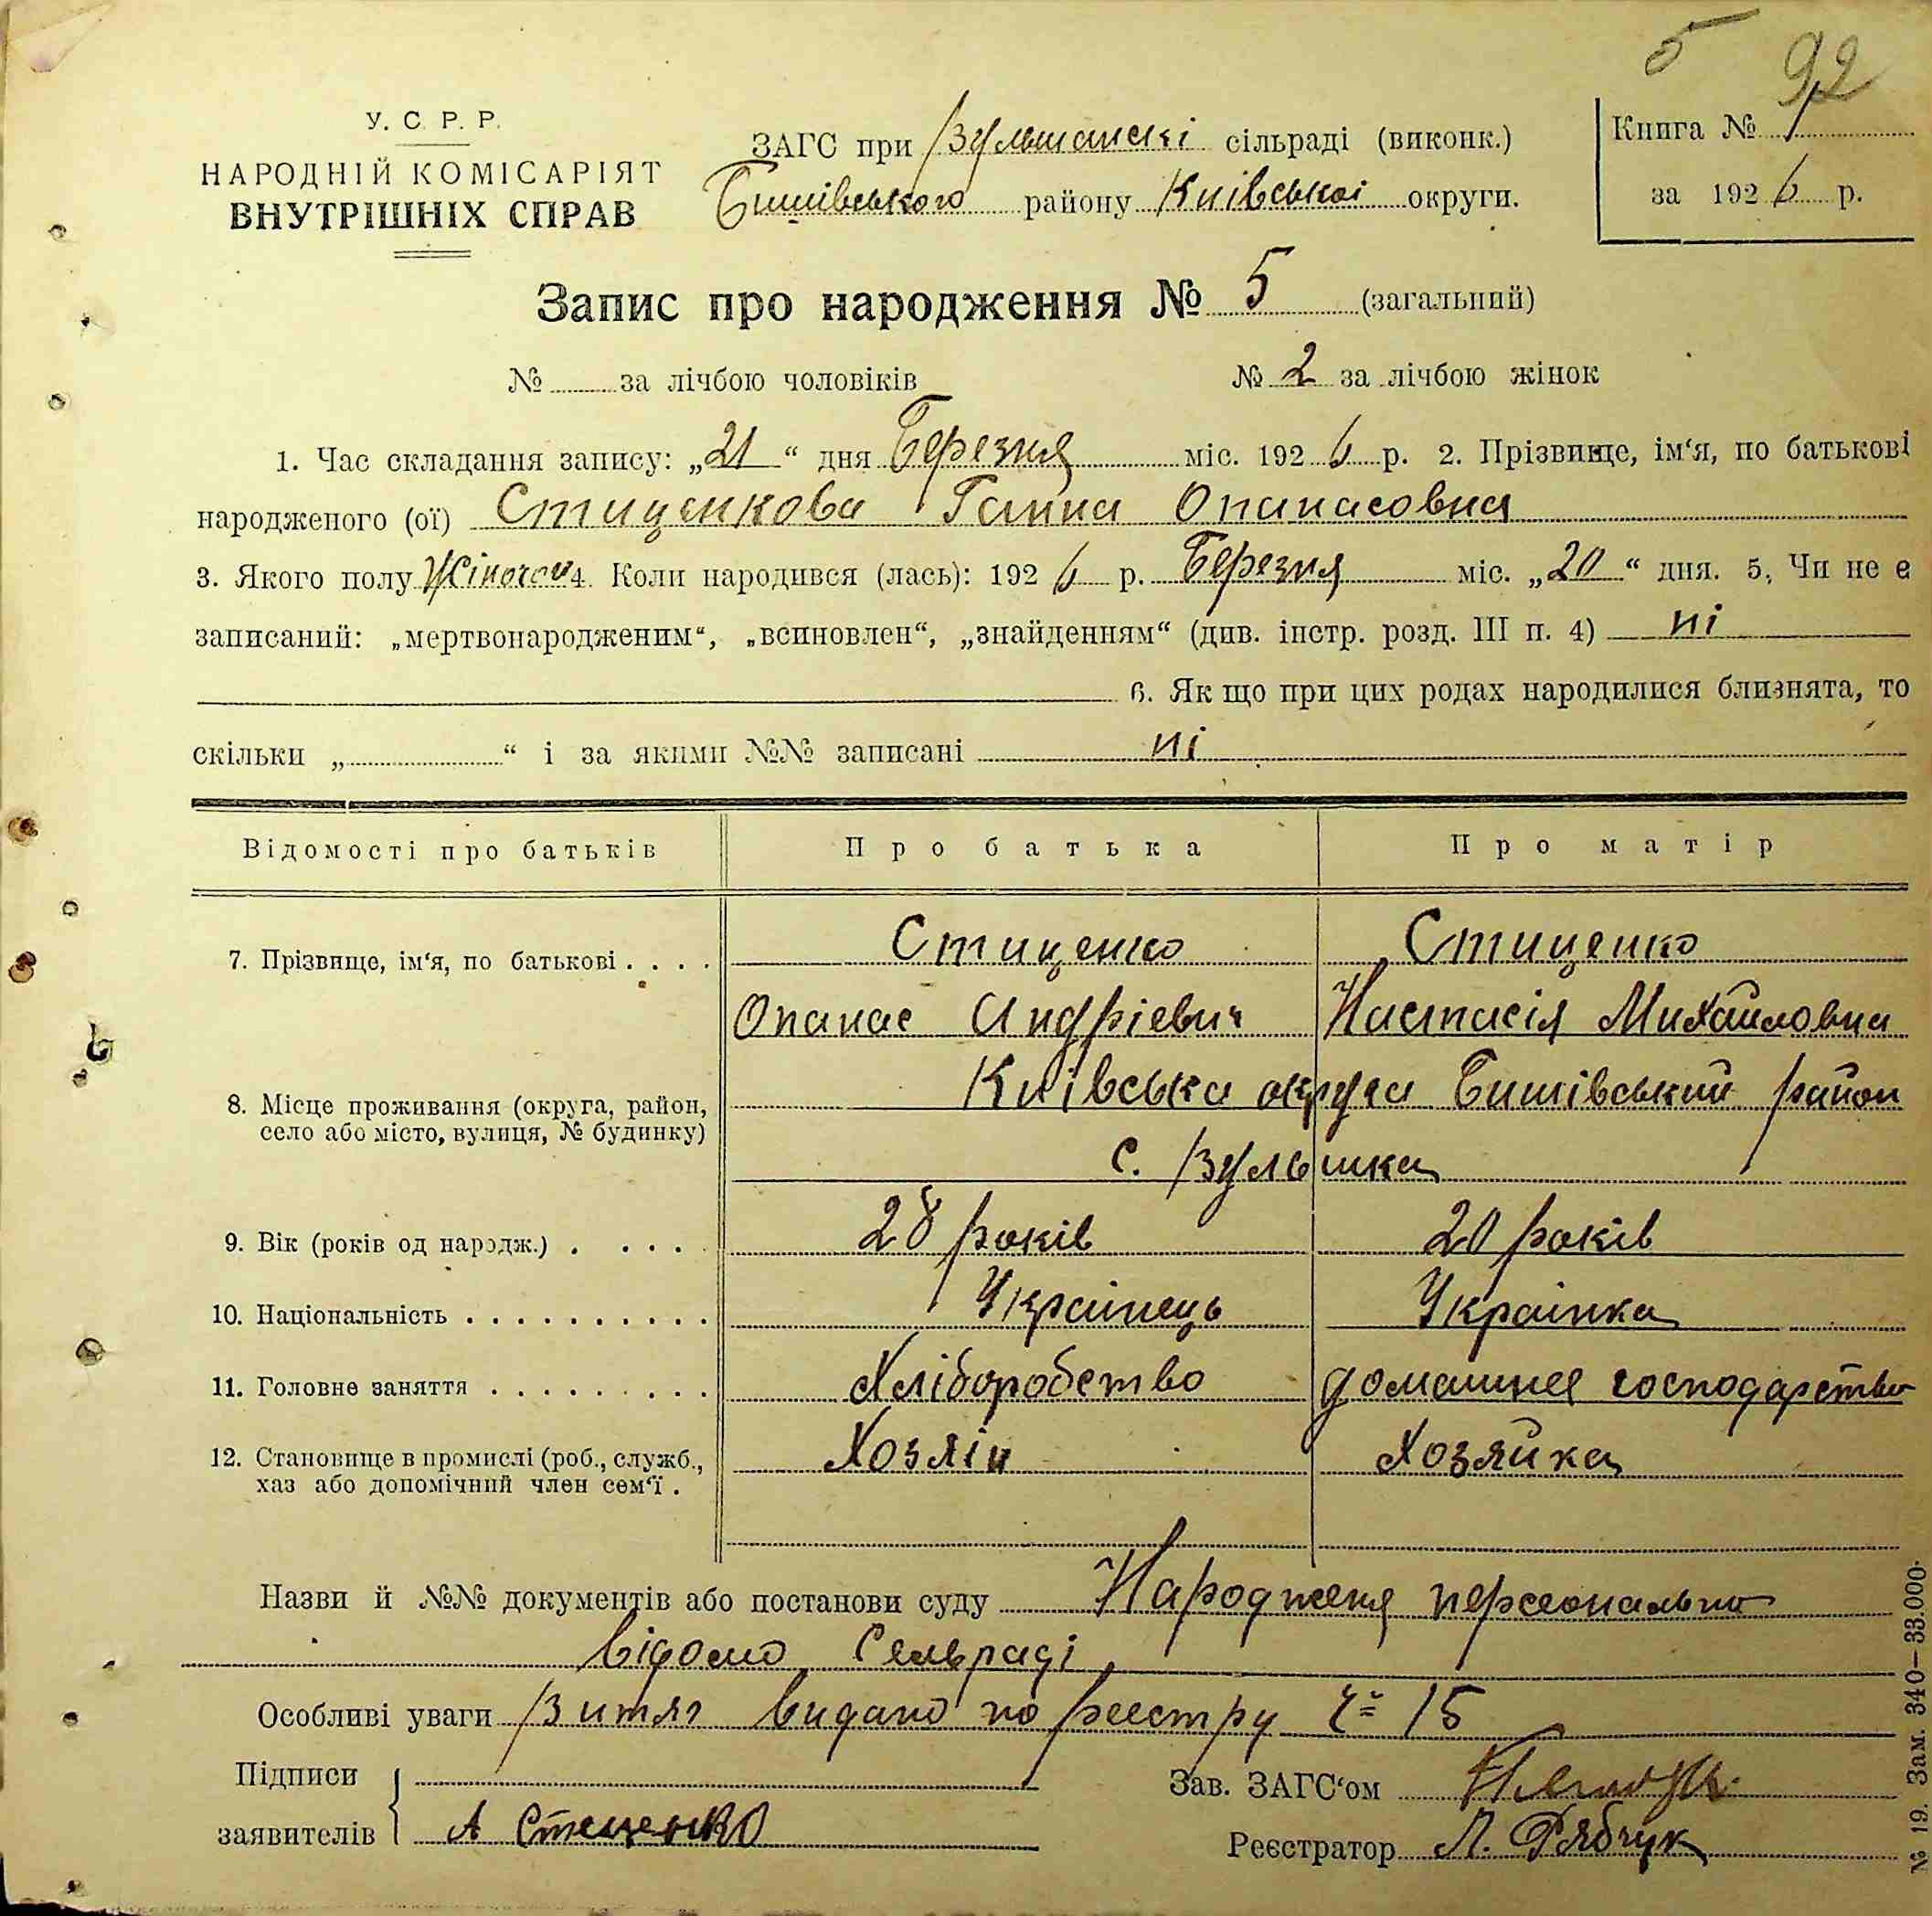 5 92
У. С. Р. Р.
НАРОДНІЙ КОМІСАРІЯТ
ВНУТРІШНІХ СПРАВ
ЗАГС при Вульшанскі сільраді (виконк.)
Бишівського району Киівськоі округи.
Книга №
за 1926 р.
Запис про народження № 5 (загальний)
№ за лічбою чоловіків № 2 за лічбою жінок
1. Час складання запису: „21“ дня Березня міс. 1926 р. 2. Прізвище, ім‘я, по батькові
народженого (ої) Стиценкова Ганна Опанасовна
3. Якого полу 4. Коли народився (лась): 1926 р. Березня міс. „20“ дня. 5. Чи не є
записаний: „мертвонародженим“, „всиновлен“, „знайденням“ (див. інстр. розд. III п. 4) ні
6. Як що при цих родах народилися близнята, то
скільки „ “ і за якими №№ записані ні
Відомості про батьків Про батька Про матір
7. Прізвище, ім‘я, по батькові . . . . Стиценко Стиценко
Опанас Андріевич Настасія Михайловна
8. Місце проживання (округа, район, село або місто, вулиця, № будинку) Киівська округа Бишівський район
с. Вульшка
9. Вік (років од народж.) . . . . . 28 років 20 років
10. Національність . . . . . . . . . . Украінець Украінка
11. Головне заняття . . . . . . . . . Хліборобство домашнее господарство
12. Становище в промислі (роб., служб., хаз або допомічний член сем‘ї . Хозяін Хозяйка
Назви й №№ документів або постанови суду Народженя персонально
відомо Сельраді
Особливі уваги Витяг видано по реестру № 15
Підписи
заявителів А Стеценко
Зав. ЗАГС‘ом
Реєстратор Л. Рябчук
№ 19. Зам. 340—33.000.